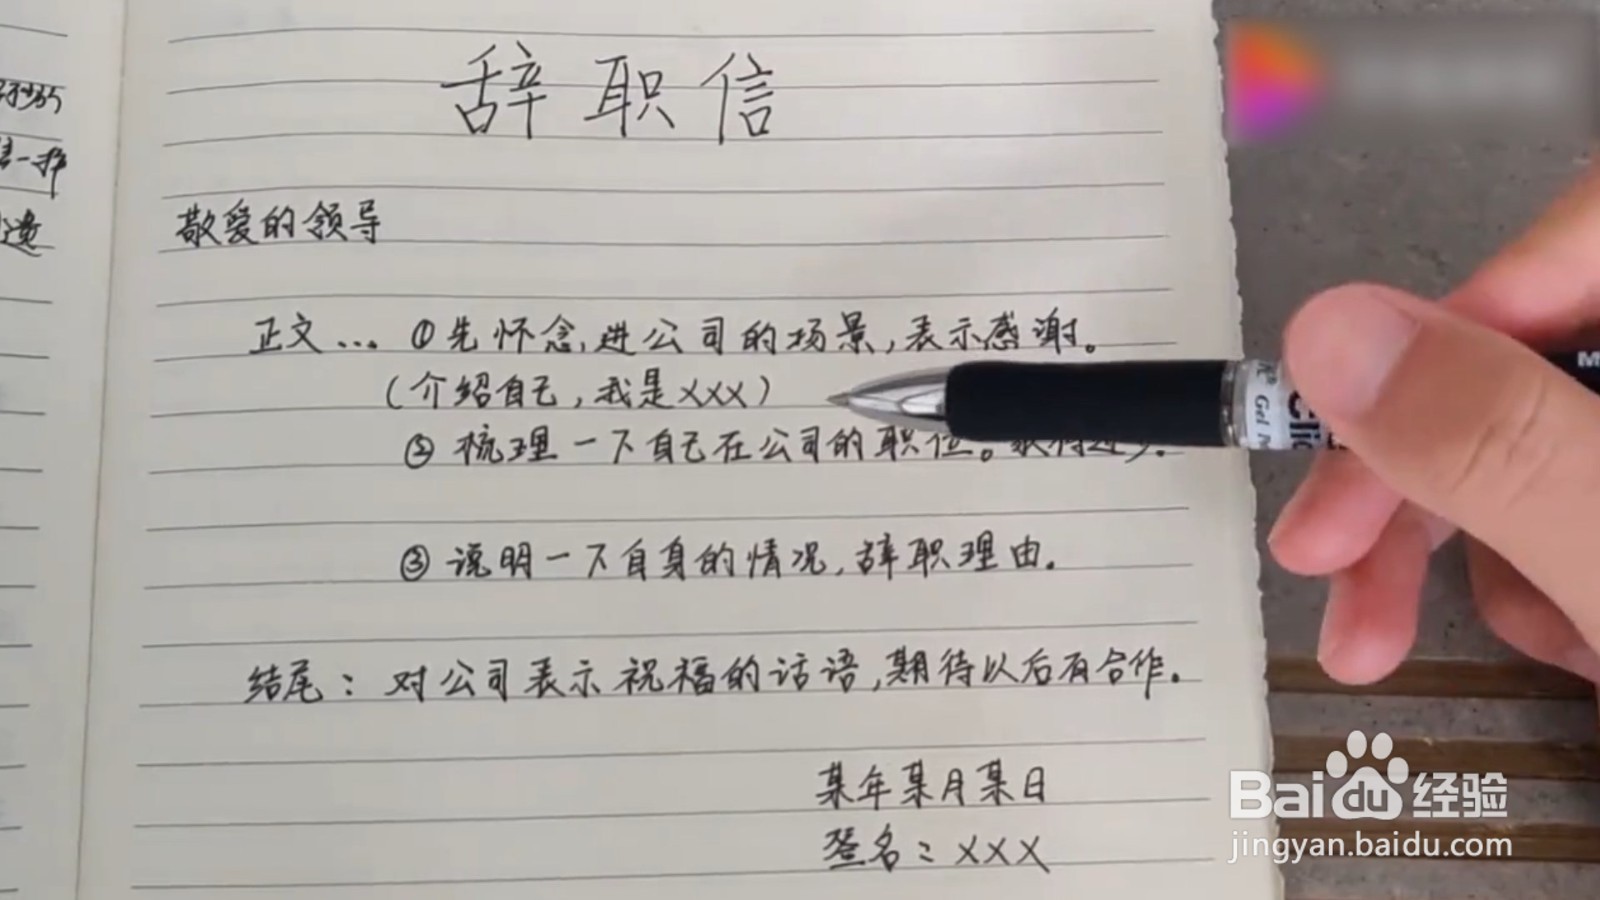 辞职信
敬爱的领导
正文... ①先怀念,进公司的场景,表示感谢。
(介绍自己,我是XXX)
②梳理一下自己在公司的职位。获得过
③说明一下自身的情况,辞职理由.
结尾:对公司表示祝福的话语,期待以后有合作.
某年某月某日
签名:XXX
Gel
Clic
M
Baidu经验
jingyan.baidu.com